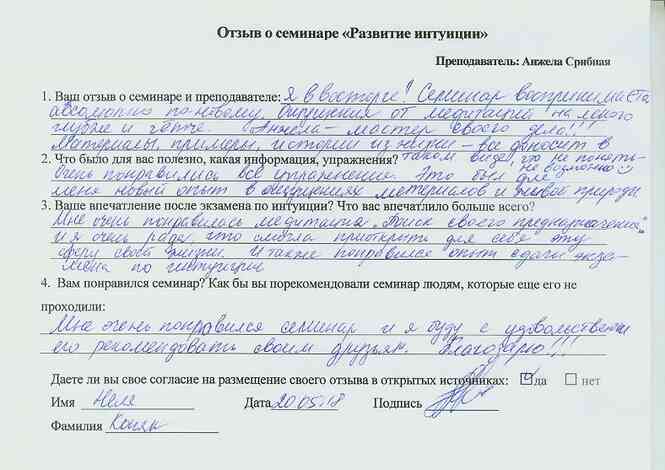 Отзыв о семинаре «Развитие интуиции»
Преподаватель: Анжела Срибная
1. Ваш отзыв о семинаре и преподавателе: Я в восторге! Семинар воспринимается
абсолютно по-новому. Ощущения от медитаций на много
глубже и чётче. Анжела - мастер своего дела!!!
Материалы, примеры, истории из жизни - все доносит в
2. Что было для вас полезно, какая информация, упражнения? таком виде, что не понять -
не возможно
Очень понравились все упражнения. Это был для
меня новый опыт в ощущениях материалов и живой природы
3. Ваше впечатление после экзамена по интуиции? Что вас впечатлило больше всего?
Мне очень понравилась медитация „Поиск своего предназначения"
и я очень рада, что смогла приоткрыть для себя эту
сферу своей жизни. И также понравился опыт сдачи экза-
мена по интуиции
4. Вам понравился семинар? Как бы вы порекомендовали семинар людям, которые еще его не
проходили:
Мне очень понравился семинар и я буду с удовольствием
его рекомендовать своим друзьям. Благодарю!!!
Даете ли вы свое согласие на размещение своего отзыва в открытых источниках: да нет
Имя Неля Дата 20.05.18 Подпись
Фамилия